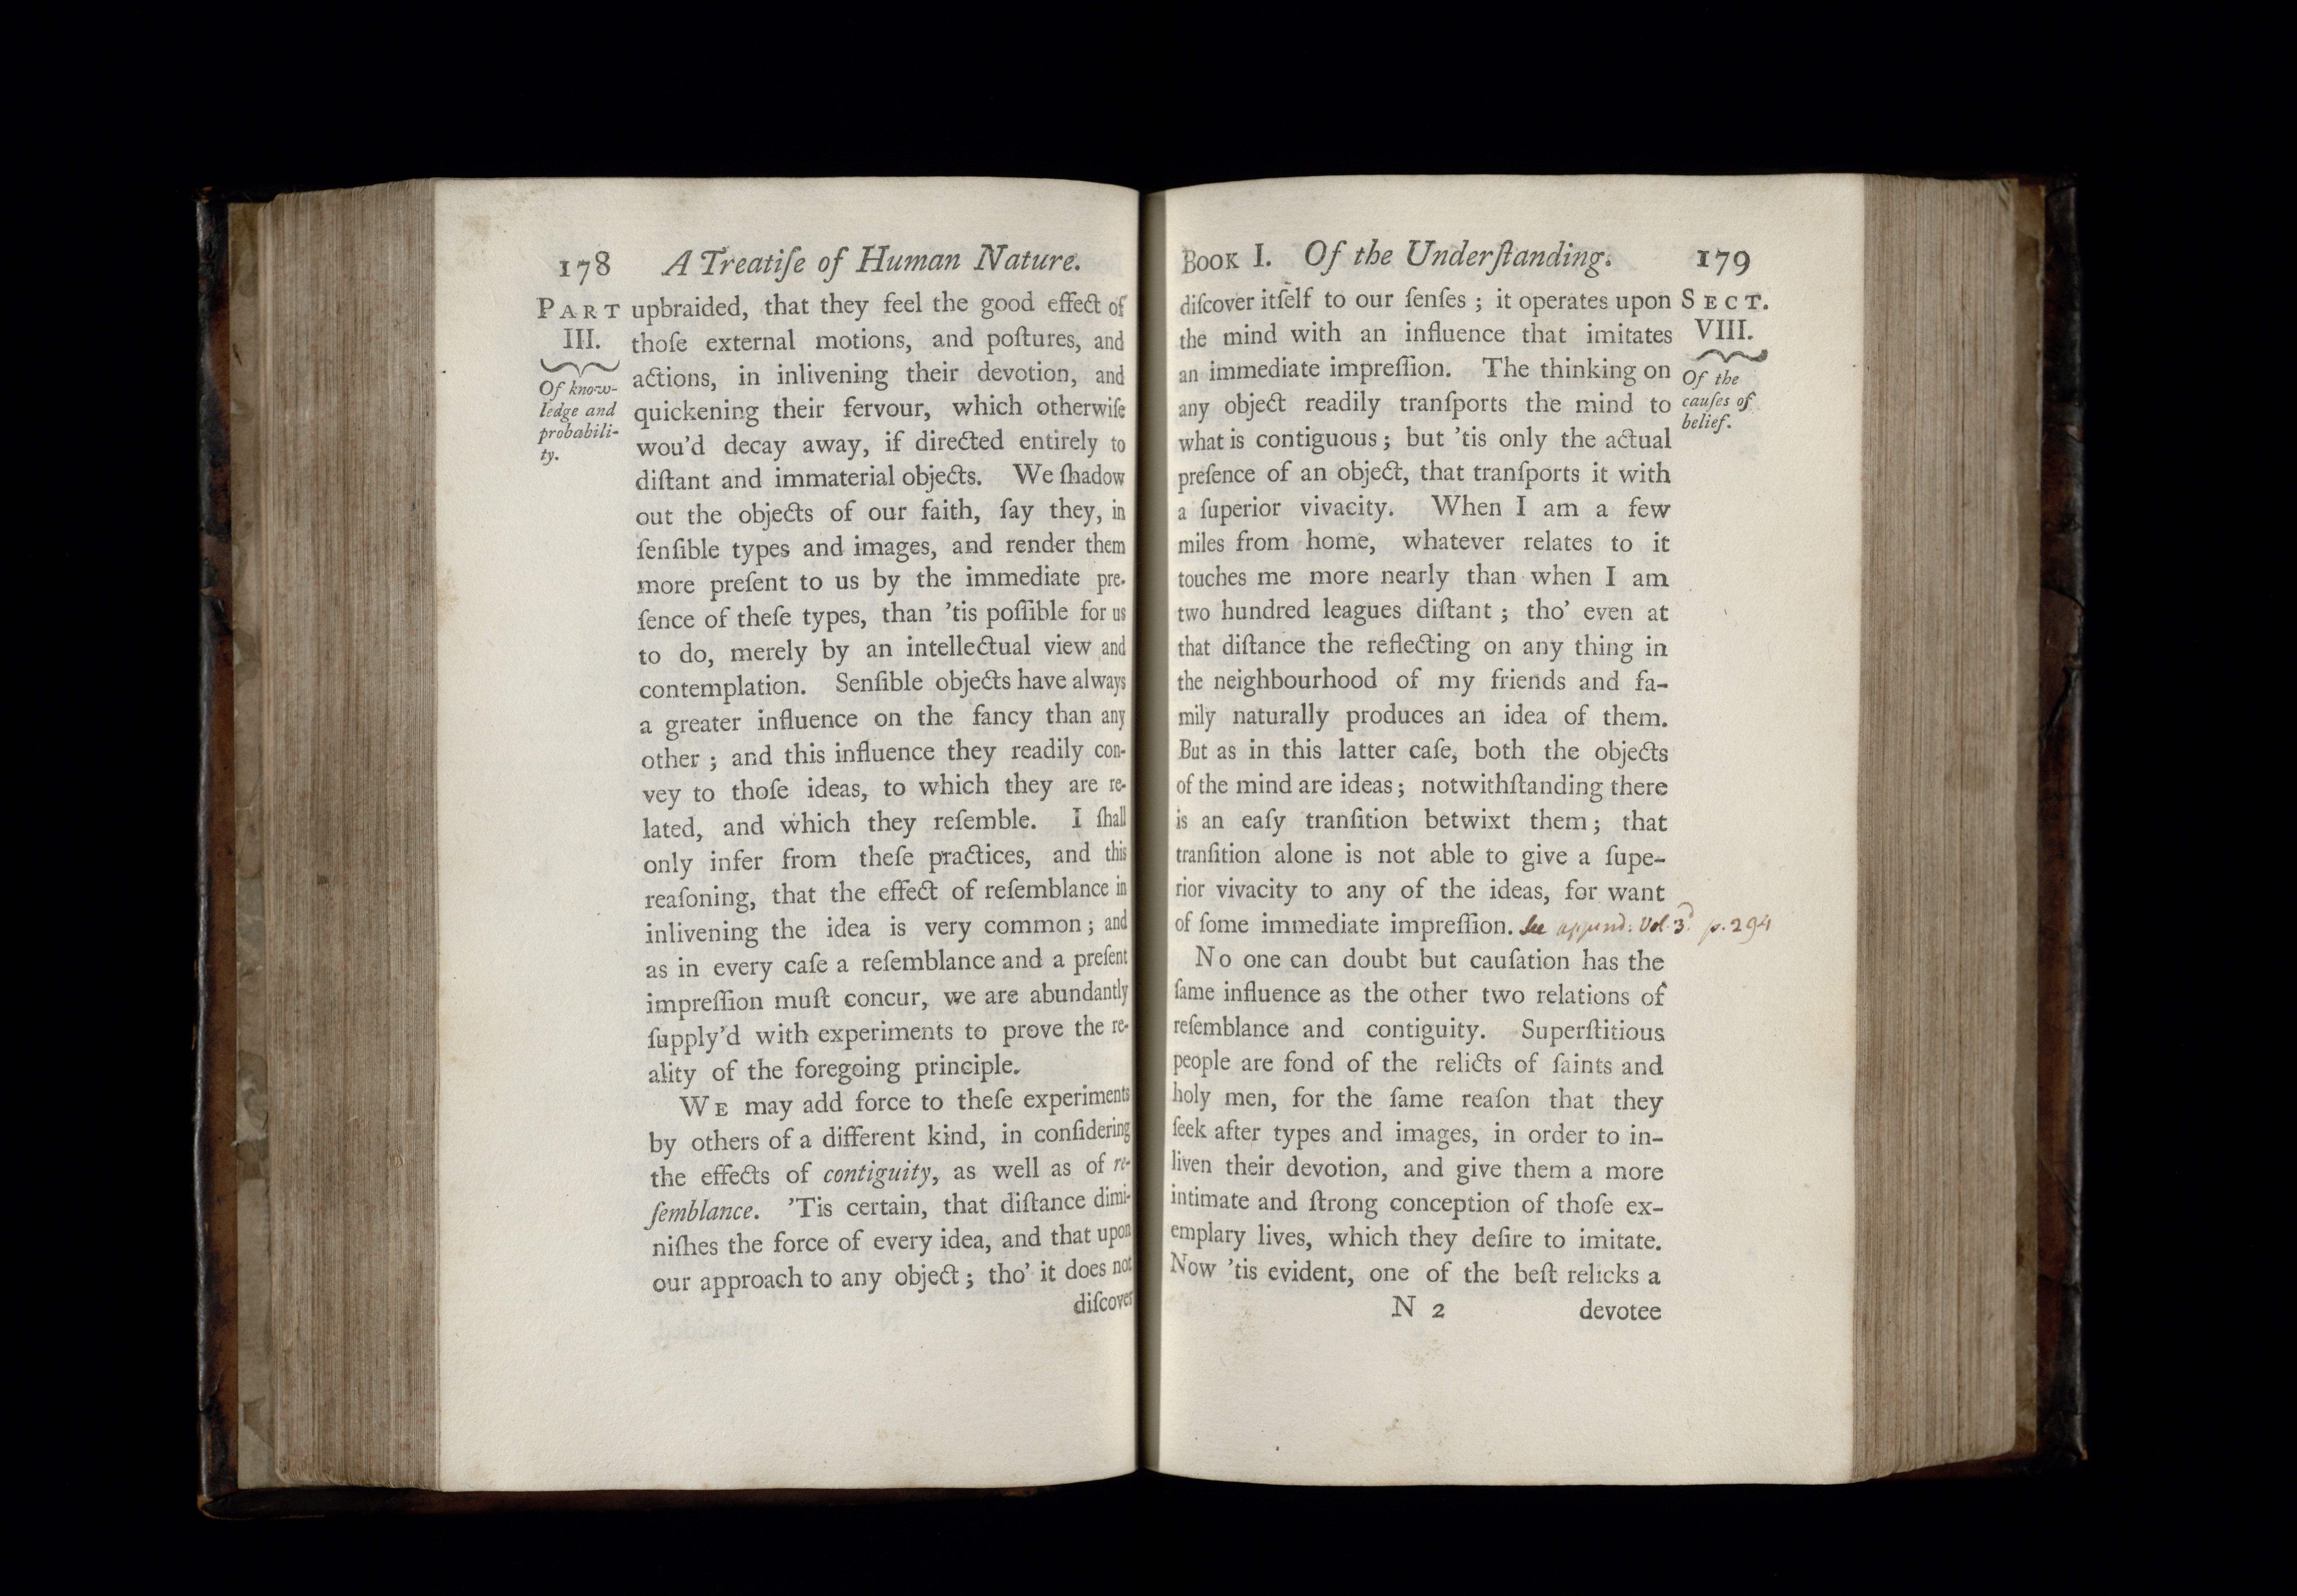 178 A Treatiſe of Human Nature.
PART
III.
Of know-
ledge and
probabili-
ty.
upbraided, that they feel the good effect of
thoſe external motions, and poſtures, and
actions, in inlivening their devotion, and
quickening their fervour, which otherwiſe
wou'd decay away, if directed entirely to
diſtant and immaterial objects. We ſhadow
out the objects of our faith, ſay they, in
ſenſible types and images, and render them
more preſent to us by the immediate pre-
ſence of theſe types, than 'tis poſſible for us
to do, merely by an intellectual view and
contemplation. Senſible objects have always
a greater influence on the fancy than any
other ; and this influence they readily con-
vey to thoſe ideas, to which they are re-
lated, and which they reſemble. I ſhall
only infer from theſe practices, and this
reaſoning, that the effect of reſemblance in
inlivening the idea is very common ; and
as in every caſe a reſemblance and a preſent
impreſſion muſt concur, we are abundantly
ſupply'd with experiments to prove the re-
ality of the foregoing principle.
WE may add force to theſe experiments
by others of a different kind, in conſidering
the effects of contiguity, as well as of re-
ſemblance. 'Tis certain, that diſtance dimi-
niſhes the force of every idea, and that upon
our approach to any object ; tho' it does not
diſcover
BOOK I. Of the Underſtanding. 179
SECT.
VIII.
Of the
cauſes of
belief.
diſcover itſelf to our ſenſes ; it operates upon
the mind with an influence that imitates
an immediate impreſſion. The thinking on
any object readily tranſports the mind to
what is contiguous ; but 'tis only the actual
preſence of an object, that tranſports it with
a ſuperior vivacity. When I am a few
miles from home, whatever relates to it
touches me more nearly than when I am
two hundred leagues diſtant ; tho' even at
that diſtance the reflecting on any thing in
the neighbourhood of my friends and fa-
mily naturally produces an idea of them.
But as in this latter caſe, both the objects
of the mind are ideas ; notwithſtanding there
is an eaſy tranſition betwixt them ; that
tranſition alone is not able to give a ſupe-
rior vivacity to any of the ideas, for want
of ſome immediate impreſſion. See append: Vol. 3d. p. 294
No one can doubt but cauſation has the
ſame influence as the other two relations of
reſemblance and contiguity. Superſtitious
people are fond of the relicts of ſaints and
holy men, for the ſame reaſon that they
ſeek after types and images, in order to in-
liven their devotion, and give them a more
intimate and ſtrong conception of thoſe ex-
emplary lives, which they deſire to imitate.
Now 'tis evident, one of the beſt relicks a
N 2 devotee